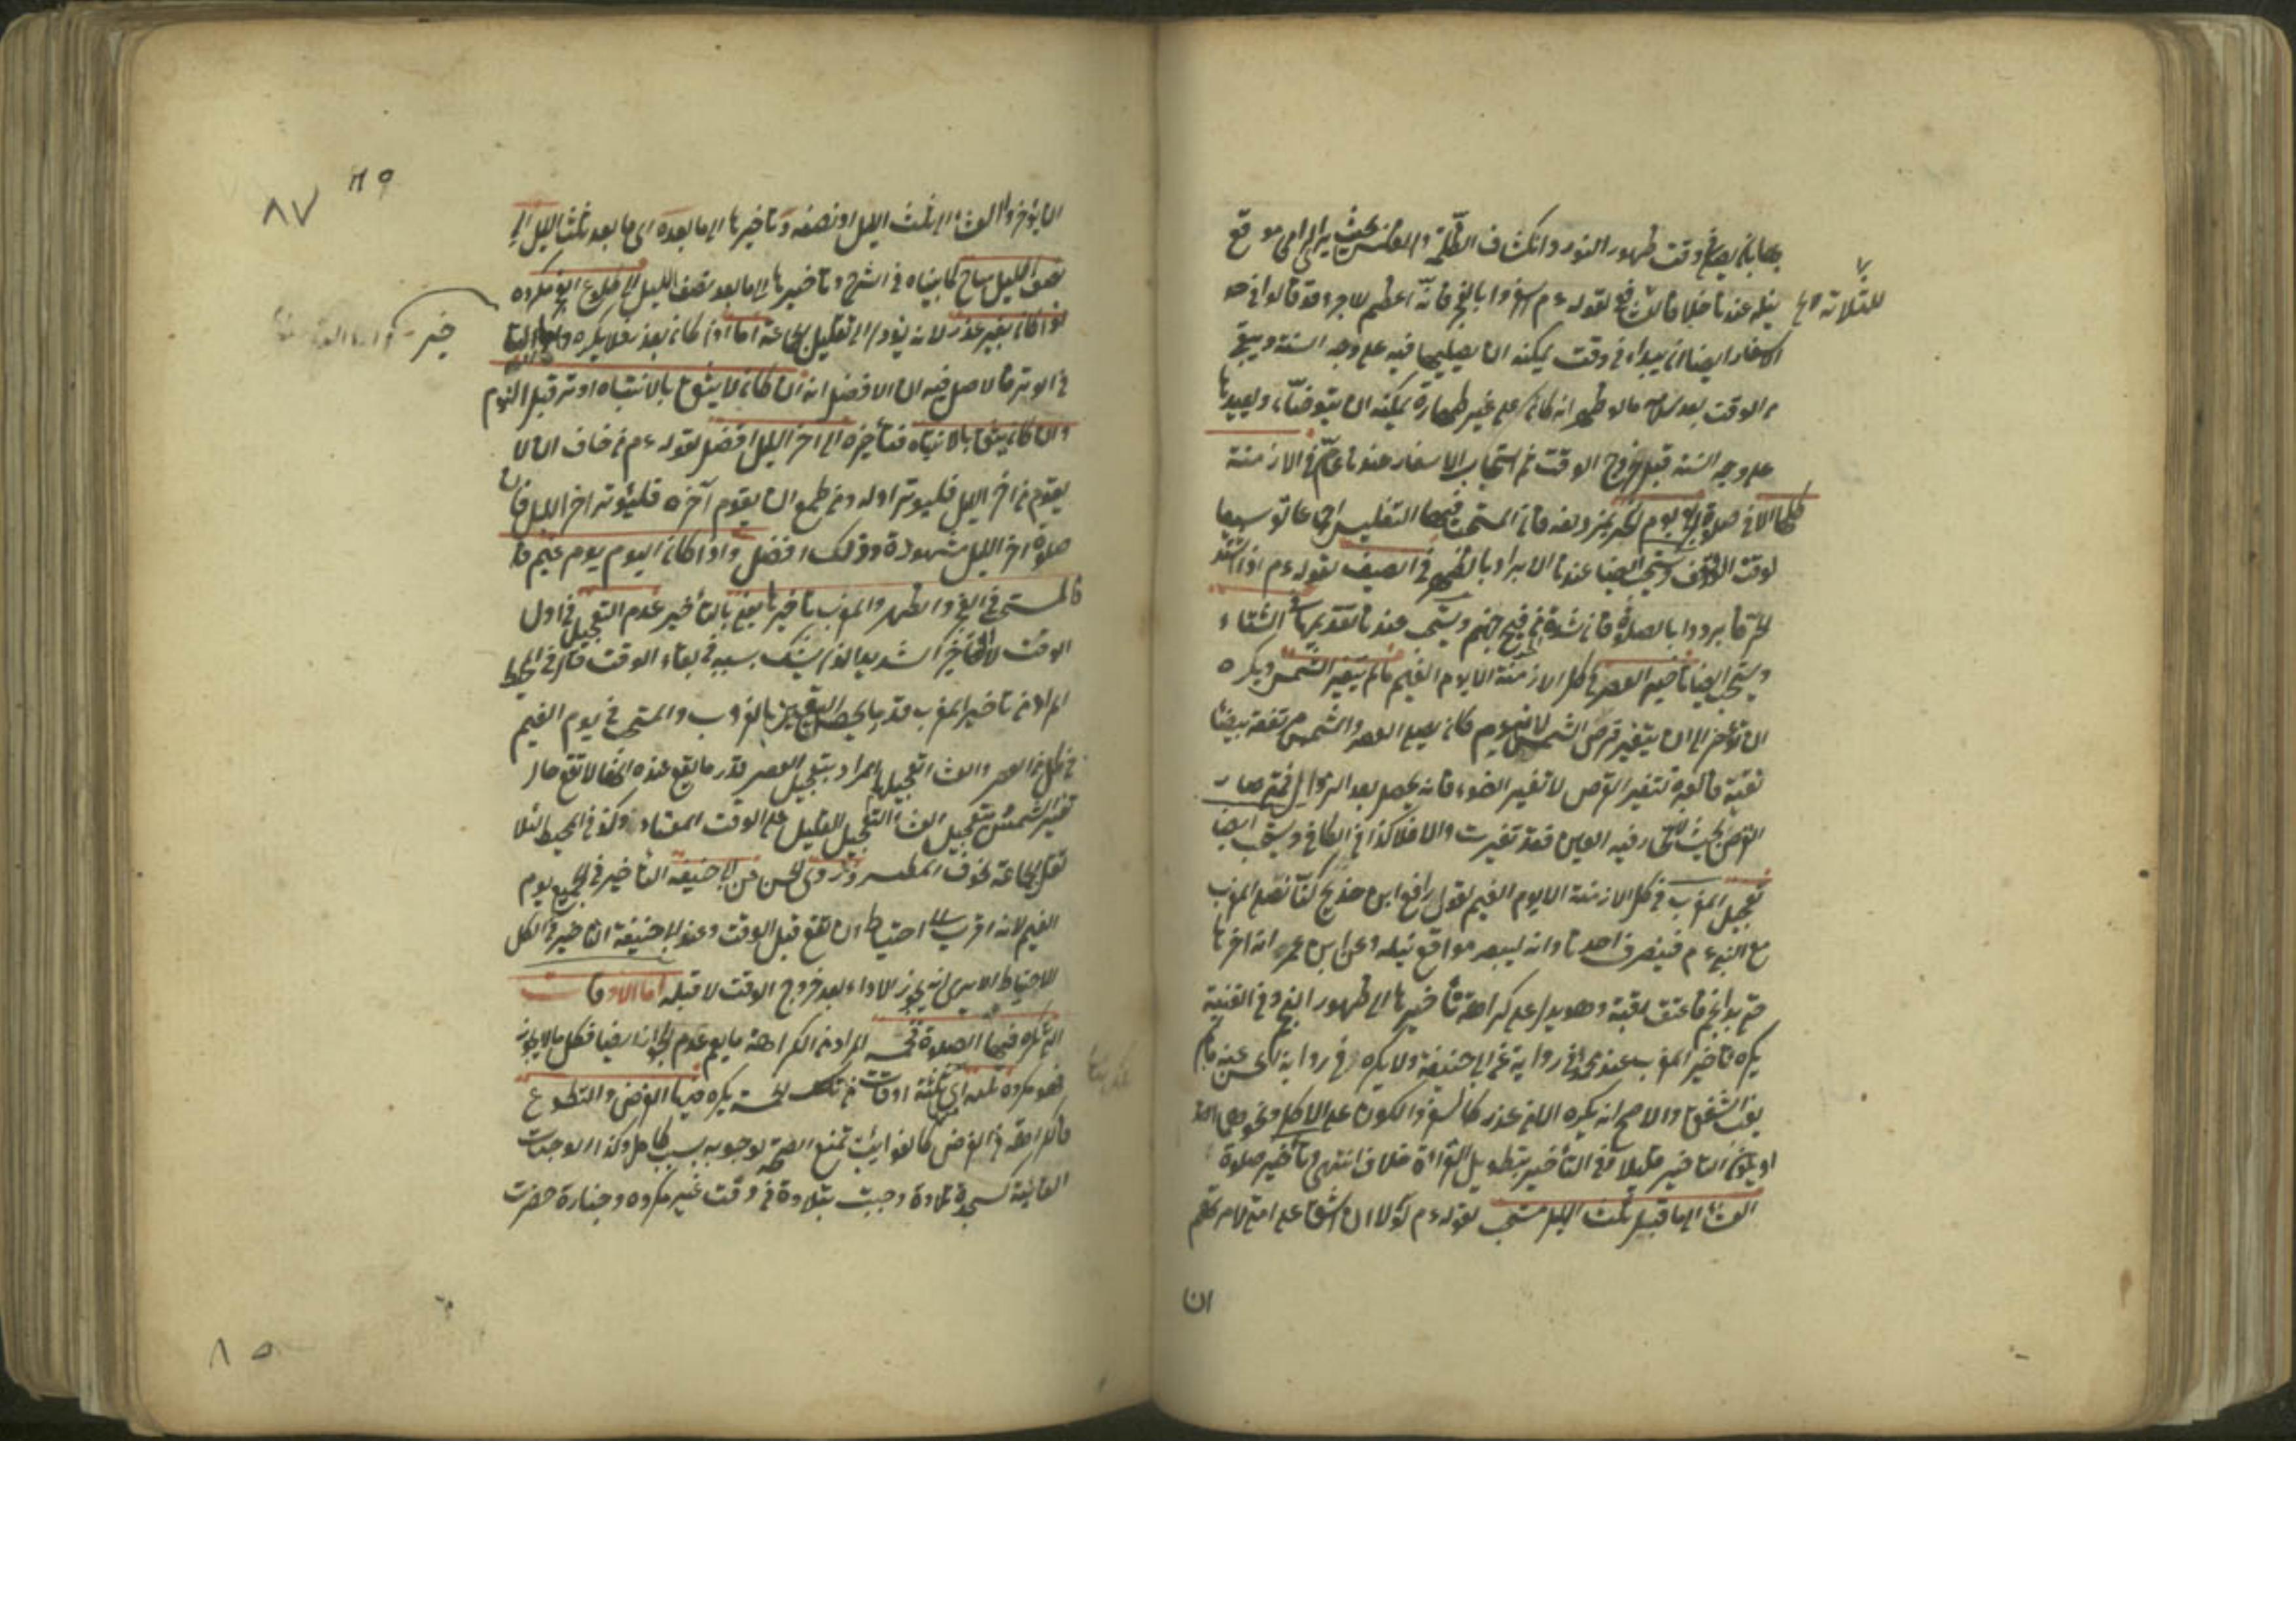 بها بان يصلي في وقت ظهور النور وانكشاف الظلمة والغلس بحيث يرى الرامي موقع
نبله عندنا خلافا للشافعي لقوله ءم اسفروا بالفجر فانه اعظم للاجر وقد قالوا في حد
للثلاثة
الاسفار ايضا ان يبداء في وقت يمكنه ان يصليها فيه على وجه السنة ويبقى
من الوقت بعد سلامه ما لو ظهر انه كان على غير طهارة يمكنه ان يتوضأ ويعيدها
على وجه السنة قبل خروج الوقت ثم استحباب الاسفار عندنا عام في الازمنة
كلها الا في صلوة الفجر يوم النحر بمزدلفة فان المستحب فيها التغليس اجماعا توسيعا
لوقت الوقوف ويستحب ايضا عندنا الابراد بالظهر في الصيف لقوله ءم اذا اشتد
الحر فابردوا بالصلوة فان شدة الحر من فيح جهنم ويستحب عندنا تقديمها في الشتاء
ويستحب ايضا تاخير العصر في كل الازمنة الا يوم الغيم ما لم يتغير الشمس ويكره
ان تؤخر الى ان يتغير قرص الشمس لانه ءم كان يصلي العصر والشمس مرتفعة بيضاء
نقية فالعبرة لتغير القرص لا تغير الضوء فانه يحصل بعد الزوال فمتى صار
القرص بحيث لا تحار فيه العين فقد تغيرت والا فلا كذا في الكافي ويستحب ايضا
تعجيل المغرب في كل الازمنة الا يوم الغيم لقول رافع ابن خديج كنا نصلي المغرب
مع النبي ءم فينصرف احدنا وانه ليبصر مواقع نبله وعن ابن عمر انه اخرها
حتى بدا نجم فاعتق رقبة وهو يدل على كراهة تأخيرها الى ظهور النجم وفي القنية
يكره تاخير المغرب عند محمد في رواية عن ابي حنيفة ولا يكره في رواية الحسن عنه ما لم
يغب الشفق والاصح انه يكره الا من عذر كالسفر والكون على الاكل ونحوهما
او يكون التاخير قليلا وفي التأخير بتطويل القراءة خلاف انتهى وتأخير صلوة
العشاء الى ما قبل ثلث الليل مستحب لقوله ءم لولا ان اشق على امتي لامرتهم
ان
٨٧
ان يؤخروا العشاء الى ثلث الليل او نصفه وتاخيرها الى ما بعده اى ما بعد ثلث الليل الى
نصف الليل مباح لما بيناه في الشرح وتاخيرها الى ما بعد نصف الليل الى طلوع الفجر مكروه
اذا كان بغير عذر لانه يؤدى الى تقليل الجماعة اما اذا كان بعذر فلا يكره واما التا
خير
في الوتر فالاصل فيه ان الافضل انه ان كان لا يثق بالانتباه اوتر قبل النوم
وان كان يثق بالانتباه فتأخيره الى اخر الليل افضل لقوله ءم من خاف ان لا
يقوم من اخر الليل فليوتر اوله ومن طمع ان يقوم آخره فليوتر اخر الليل فان
صلوة اخر الليل مشهودة وذلك افضل واذا كان اليوم يوم غيم
فالمستحب في الفجر والظهر والمغرب تاخيرها يعني بالتأخير عدم التعجيل في اول
الوقت لا التأخير الشديد الذي يشك بسببه في بقاء الوقت قال في المحيط
المراد من تاخير المغرب قدر ما يحصل التيقن بالغروب والمستحب في يوم الغيم
في كل من العصر والعشاء التعجيل المراد بتعجيل العصر قدر ما يقع عنده انها لا تقع حال
تغير الشمس وبتعجيل العشاء التعجيل القليل على الوقت المعتاد ذكره في المحيط لئلا
تقل الجماعة لخوف المطر وروى الحسن عن ابي حنيفة التأخير في الجميع يوم
الغيم لانه اقرب الى احتياط ان تقع قبل الوقت وعند ابي حنيفة التاخير في الكل
للاحتياط الا يرى انه يجوز الاداء بعد خروج الوقت لا قبله اما الاوقات
التي تكره فيها الصلوة خمسة المراد من الكراهة ما يعم عدم الجواز ايضا فكل ما لا يجوز
فهو مكروه ثلثة اى ثلثة اوقات من تلك الخمسة يكره فيها الفرض والتطوع
فالكراهة في الفرض كالفوايت تمنع الصحة لوجوبه بسبب كامل وكذا الواجبات
الفائتة كسجدة تلاوة وجبت بتلاوة في وقت غير مكروه وجنازة حضرت